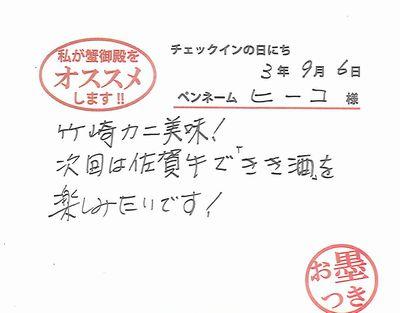 私が蟹御殿を
オススメ
します!!
チェックインの日にち
3年9月6日
ペンネーム ヒーコ 様
竹崎カニ美味!
次回は佐賀牛で「きき酒」を
楽しみたいです!
お墨
つき